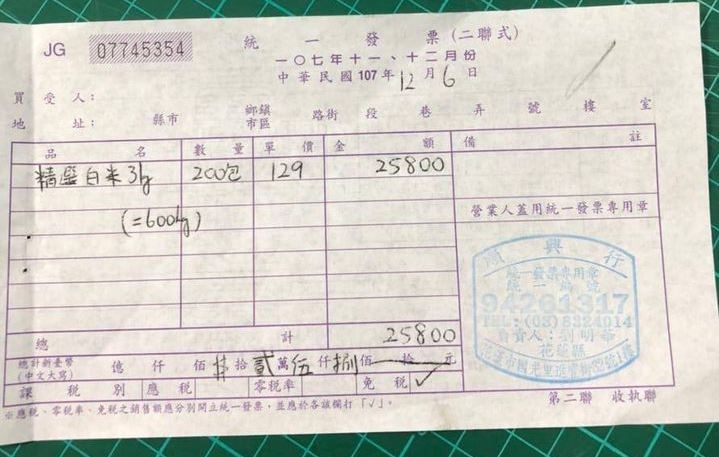 統一發票(二聯式)
JG 07745354
一〇七年十一、十二月份
中華民國107年12月6日
買受人：
地址： 縣市 鄉鎮市區 路街 段 巷 弄 號 樓 室
品名 數量 單價 金額 備註
精選白米3kg 200包 129 25800
(=600kg)
營業人蓋用統一發票專用章
順興行
統一發票專用章
統一編號
94261317
TEL:(03)8324014
負責人：劉明華
花蓮縣
總計 25800
總計新臺幣(中文大寫) 億 仟 佰 拾 貳 萬 伍 仟 捌 佰 拾 元
課稅別 應稅 零稅率 免稅 ✓
※應稅、零稅率、免稅之銷售額應分別開立統一發票，並應於各該欄打「✓」。
第二聯 收執聯